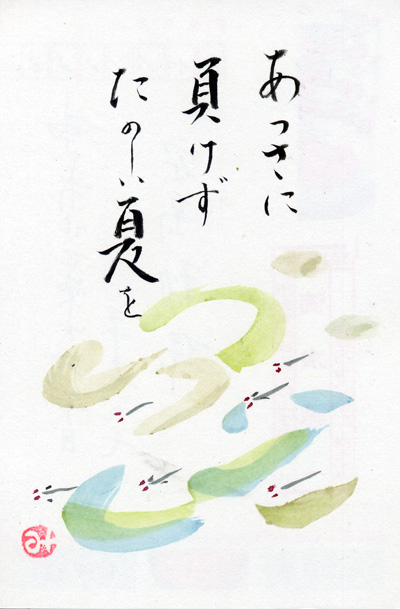 あつさに
負けず
たのしい夏を
み